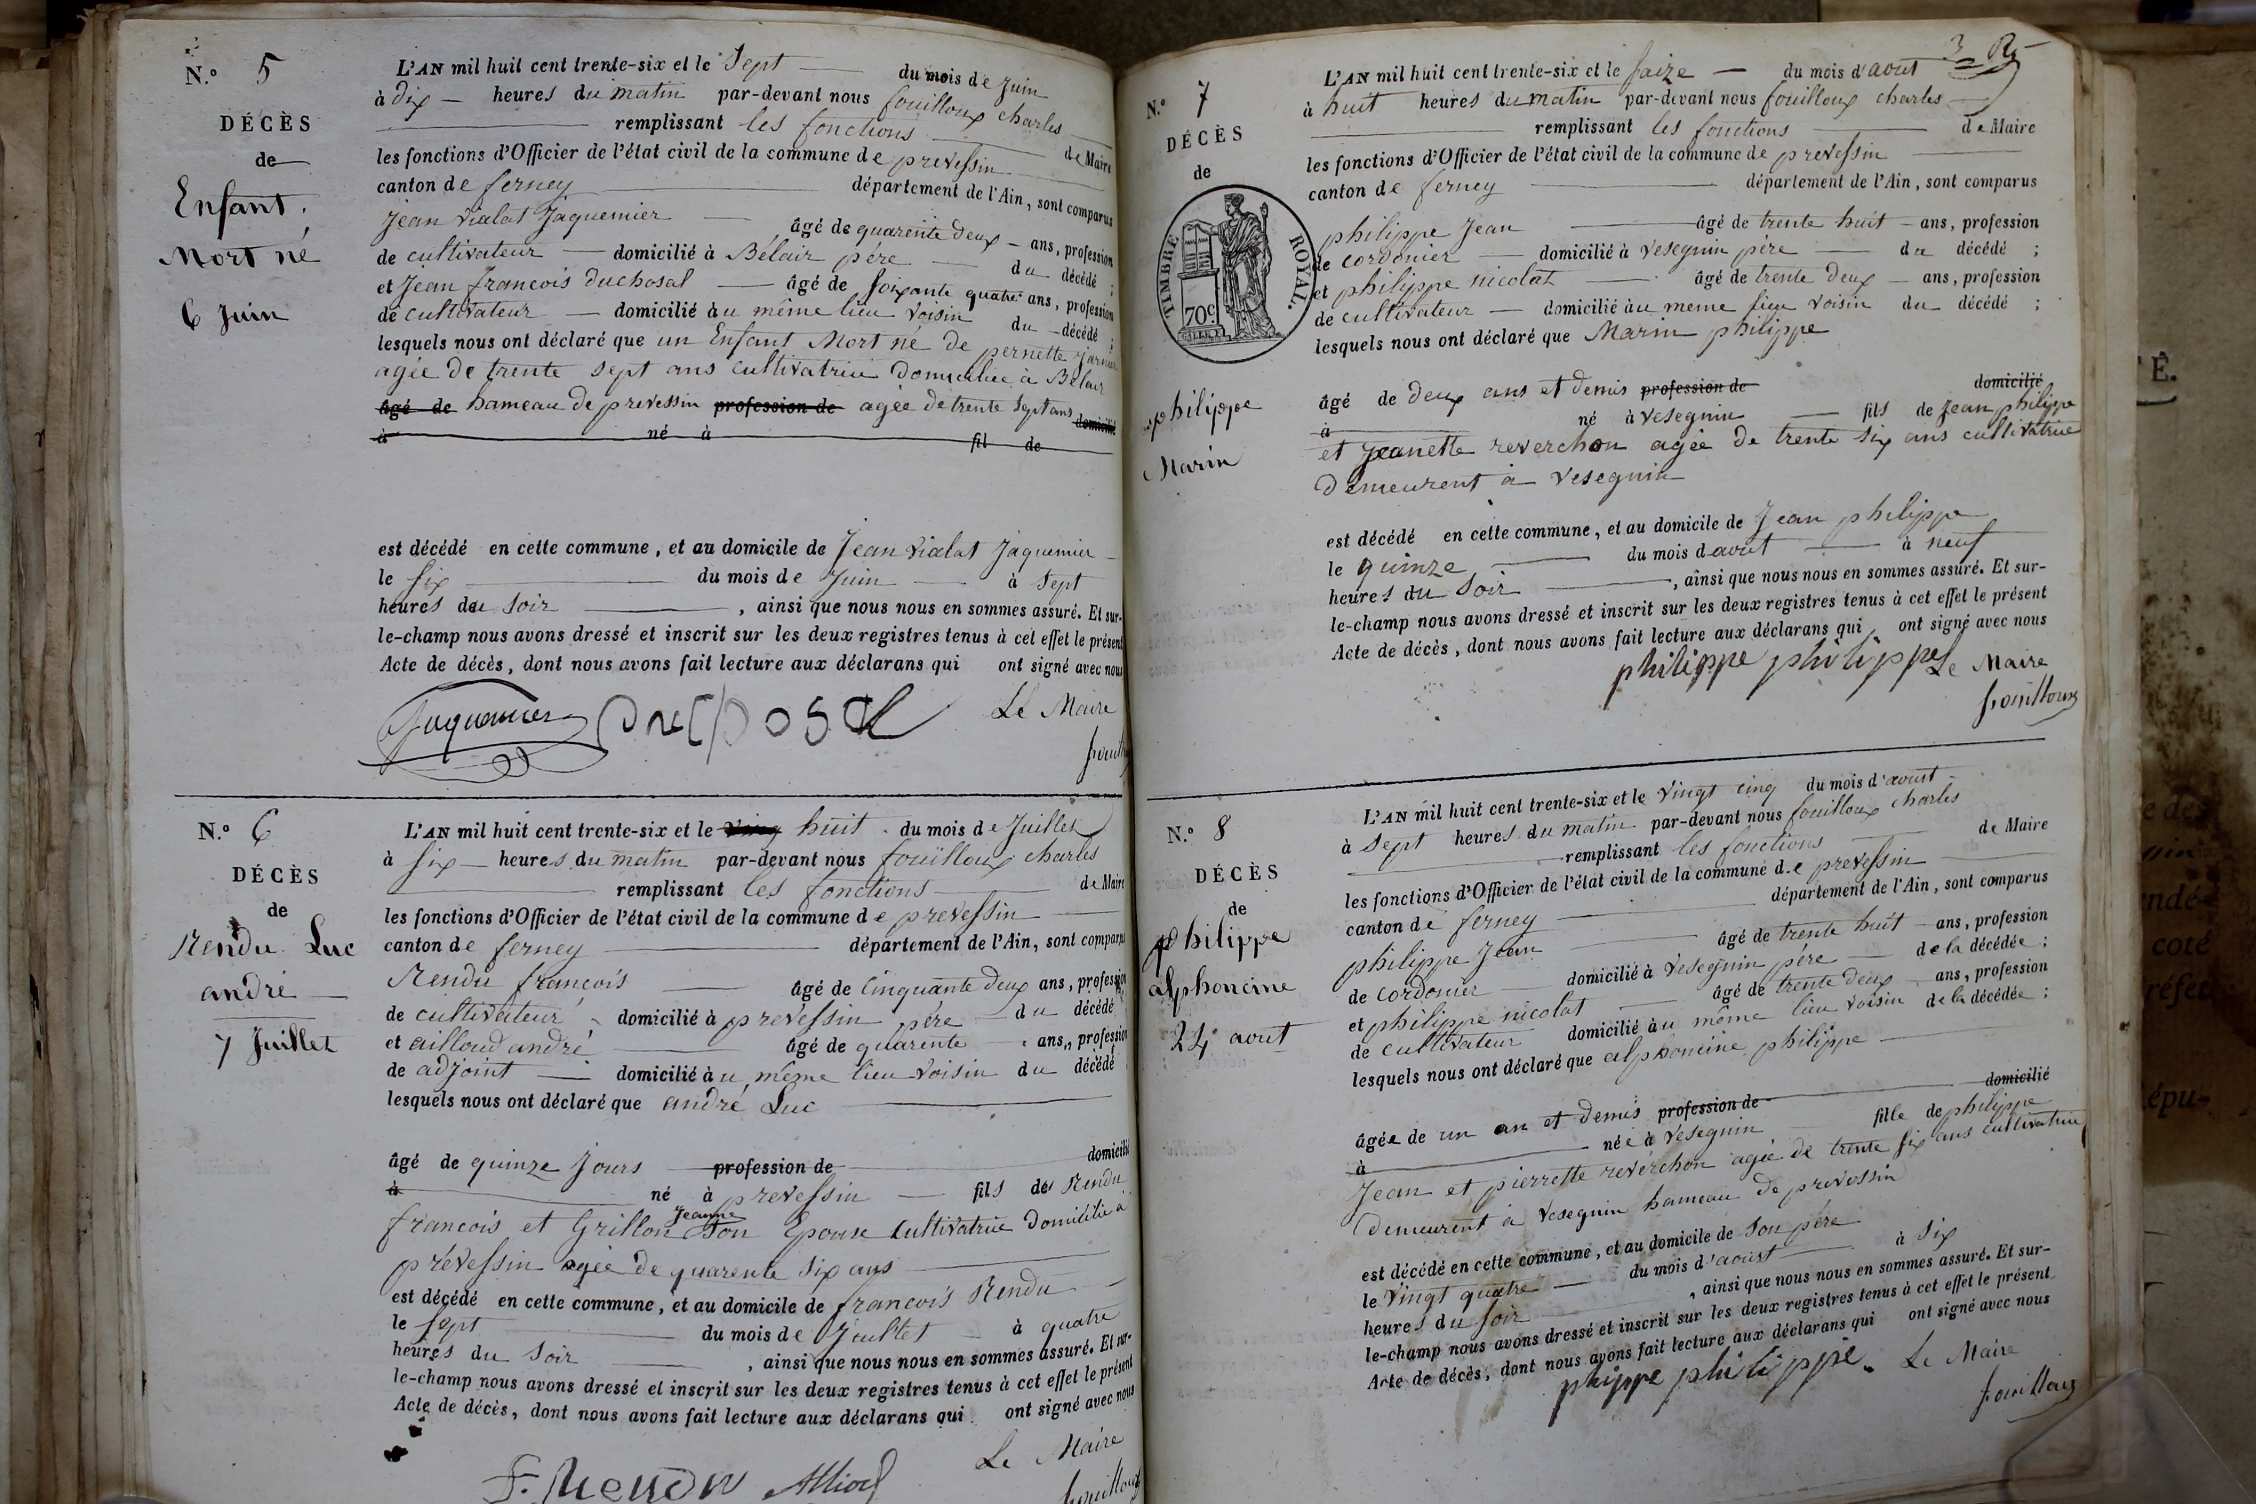 N.o 5
DÉCÈS
de
Enfant.
Mort né
6 Juin
L'AN mil huit cent trente-six et le Sept du mois de Juin
à dix heures du matin par-devant nous fouilloux charles
remplissant les fonctions de Maire
les fonctions d'Officier de l'état civil de la commune de prevessin
canton de ferney département de l'Ain, sont comparus
Jean Vialat Jaquemier âgé de quarente deux ans, profession
de cultivateur domicilié à Bélair père du décédé ;
et Jean francois Duchosal âgé de soixante quatre ans, profession
de cultivateur domicilié au même lieu voisin du décédé ;
lesquels nous ont déclaré que un Enfant Mort né de pernette
agée de trente sept ans cultivatrice domiciliée à Bélair
âgé de hameau de prevessin profession de agée de trente sept ans domicilié
à né à fil de
est décédé en cette commune, et au domicile de Jean Vialat Jaquemier
le six du mois de Juin à sept
heures du soir , ainsi que nous nous en sommes assuré. Et sur-
le-champ nous avons dressé et inscrit sur les deux registres tenus à cet effet le présent
Acte de décès, dont nous avons fait lecture aux déclarans qui ont signé avec nous
Le Maire
Jaquemier Duchosal
N.o 6
DÉCÈS
de
Rendu Luc
andré
7 Juillet
L'AN mil huit cent trente-six et le huit du mois de Juillet
à six heures du matin par-devant nous fouilloux charles
remplissant les fonctions de Maire
les fonctions d'Officier de l'état civil de la commune de prevessin
canton de ferney département de l'Ain, sont comparus
Rendu francois âgé de cinquante deux ans, profession
de cultivateur domicilié à prévessin père du décédé
et ailloud andré âgé de quarente ans, profession
de adjoint domicilié au même lieu voisin du décédé
lesquels nous ont déclaré que andré Luc
âgé de quinze Jours profession de domicilié
à né à prevessin fils de Rendu
francois et Grillon Jeanne son Epouse cultivatrice domicilié à
prévessin agée de quarente six ans
est décédé en cette commune, et au domicile de francois Rendu
le sept du mois de Juillet à quatre
heures du soir , ainsi que nous nous en sommes assuré. Et sur-
le-champ nous avons dressé et inscrit sur les deux registres tenus à cet effet le présent
Acte de décès, dont nous avons fait lecture aux déclarans qui ont signé avec nous
Le Maire
fouilloux
3
N.o 7
DÉCÈS
de
TIMBRE ROYAL.
70c
philippe
Marin
L'AN mil huit cent trente-six et le saize du mois d'aout
à huit heures du matin par-devant nous fouilloux charles
remplissant les fonctions de Maire
les fonctions d'Officier de l'état civil de la commune de prevessin
canton de ferney département de l'Ain, sont comparus
philippe Jean âgé de trente huit ans, profession
de cordonier domicilié à Vesegnin père du décédé ;
et philippe nicolat âgé de trente deux ans, profession
de cultivateur domicilié au meme lieu voisin du décédé ;
lesquels nous ont déclaré que Marin philippe
âgé de deux ans et demis profession de domicilié
à né à Vesegnin fils de Jean philippe
et Jeanette reverchon agée de trente six ans cultivatrice
demeurent à Vesegnin
est décédé en cette commune, et au domicile de Jean philippe
le quinze du mois d'aout à neuf
heures du soir , ainsi que nous nous en sommes assuré. Et sur-
le-champ nous avons dressé et inscrit sur les deux registres tenus à cet effet le présent
Acte de décès, dont nous avons fait lecture aux déclarans qui ont signé avec nous
philippe philippe Le Maire
fouilloux
N.o 8
DÉCÈS
de
philippe
alphoncine
24 aout
L'AN mil huit cent trente-six et le Vingt cinq du mois d'aoust
à sept heures du matin par-devant nous fouilloux charles
remplissant les fonctions de Maire
les fonctions d'Officier de l'état civil de la commune de prevessin
canton de ferney département de l'Ain, sont comparus
philippe Jean âgé de trente huit ans, profession
de cordonier domicilié à Vesegnin père de la décédée ;
et philippe nicolat âgé de trente deux ans, profession
de cultivateur domicilié au même lieu voisin de la décédée ;
lesquels nous ont déclaré que alphoncine philippe
âgée de un an et demis profession de domicilié
à née à Vesegnin fille de philippe
Jean et pierrette reverchon agée de trente six ans cultivatrice
demeurent à Vesegnin hameau de prevessin
est décédé en cette commune, et au domicile de son père
le Vingt quatre du mois d'aoust à six
heures du soir , ainsi que nous nous en sommes assuré. Et sur-
le-champ nous avons dressé et inscrit sur les deux registres tenus à cet effet le présent
Acte de décès, dont nous avons fait lecture aux déclarans qui ont signé avec nous
phippe philippe Le Maire
fouilloux